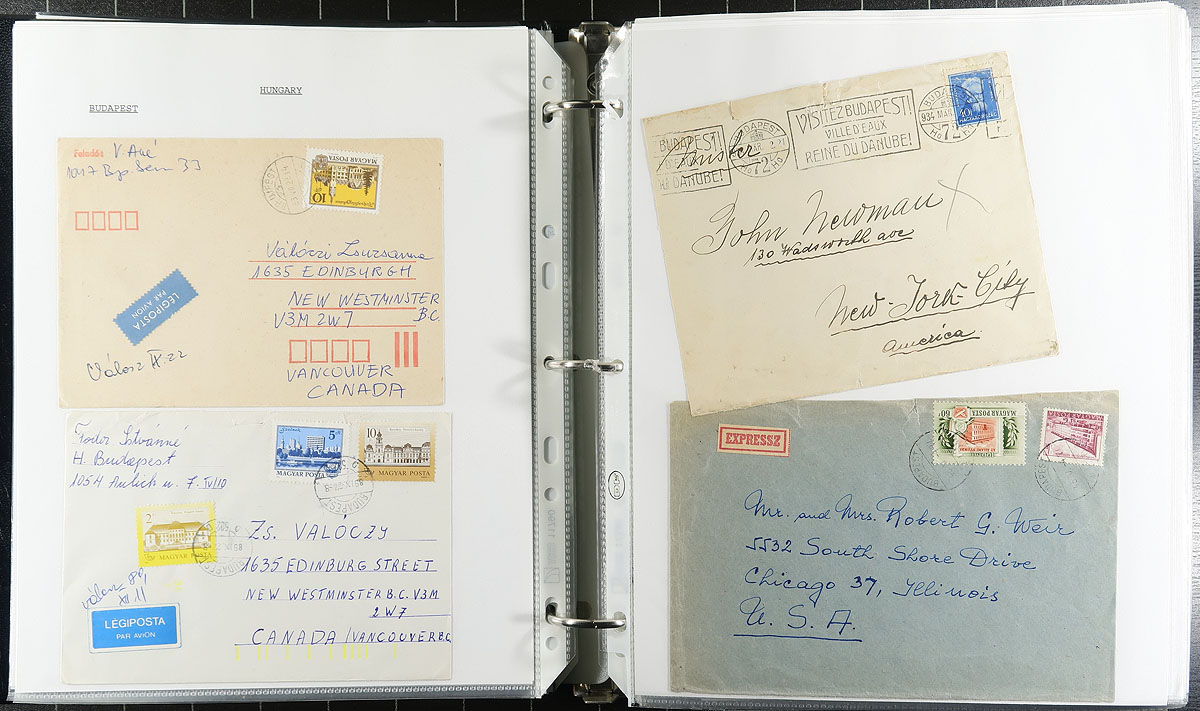 HUNGARY
BUDAPEST
Feladó: V. Ané
1017 Bp.
10
MAGYAR POSTA
Válóczi Zsuzsanna
1635 EDINBURGH
NEW WESTMINSTER
B.C.
V3M 2W7
VANCOUVER
CANADA
LÉGIPOSTA
PAR AVION
Válasz IX.22
Fodor Istvánné
H. Budapest
1054 Aulich u. 7. IV/10
5
MAGYAR POSTA
10
MAGYAR POSTA
2
MAGYAR POSTA
BUDAPEST
ZS. VALÓCZY
1635 EDINBURG STREET
NEW WESTMINSTER B.C. V3M
2W7
CANADA / VANCOUVER B.C.
válasz 89,
XII 11
LÉGIPOSTA
PAR AVION
BUDAPEST!
DANUBE!
BUDAPEST
72
VISITEZ BUDAPEST!
VILLE D'EAUX
REINE DU DANUBE!
BUDAPEST
934 MAR
72
40
John Newman
130 Wadsworth ave
New-York-City
America
EXPRESSZ
60
MAGYAR POSTA
MAGYAR POSTA
BUDAPEST
Mr. and Mrs. Robert G. Weir
5532 South Shore Drive
Chicago 37, Illinois
U. S. A.